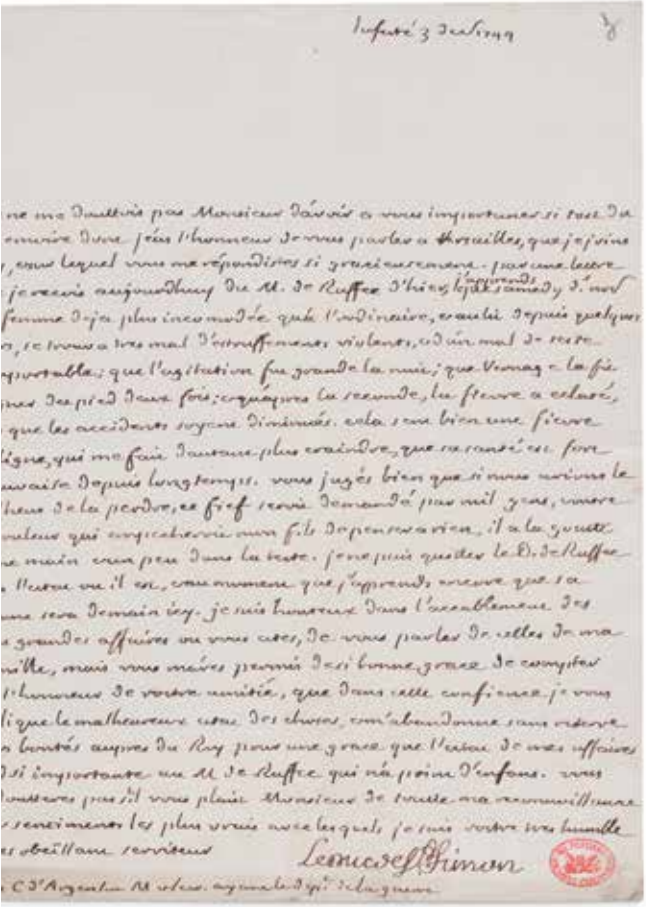 la ferté 3 1749
ne me douttois pas Monsieur d'avoir a vous importuner si tost du
j'eus l'honneur de vous parler a Versailles, que je joins
sur lequel vous me répondistes si gracieusement. par une lettre
je recois aujourdhuy du M. de Ruffec d'hier, j'apprends que samedy
femme deja plus incomodée qu'a l'ordinaire, depuis quelques
se trouva tres mal d'étouffements violents, et d'un mal de teste
que l'agitation fut grande la nuit; que Vernage la fit
du pied deux fois; et qu'apres la seconde, la fievre a
que les accidents soyent diminués. cela sent bien une fievre
qui me fait d'autant plus craindre, que sa santé est fort
depuis longtemps. vous jugés bien que si nous avions le
de la perdre, ce fief seroit demandé par mil gens,
qui empescheroit mon fils de penser a rien, il a la goutte
main et un peu dans la teste. je ne puis quitter le D. de Ruffec
l'estat ou il est, et au moment que j'apprends encore que sa
sera demain icy. je suis honteux dans l'accablement des
grandes affaires ou vous estes, de vous parler de celles de ma
mais vous m'avés permis de si bonne grace de compter
l'honneur de vostre amitié, que dans cette confience je vous
le malheureux estat des choses, et m'abandonne sans reserve
bontés aupres du Roy pour une grace que l'estat de mes affaires
si importante au M. de Ruffec qui n'a point d'enfans. vous
pas s'il vous plaist Monsieur de toutte ma reconnoissance
sentiments les plus vrais avec lesquels je suis vostre tres humble
obeissant serviteur
Le duc de St Simon
C. d'Argenson M de la guerre